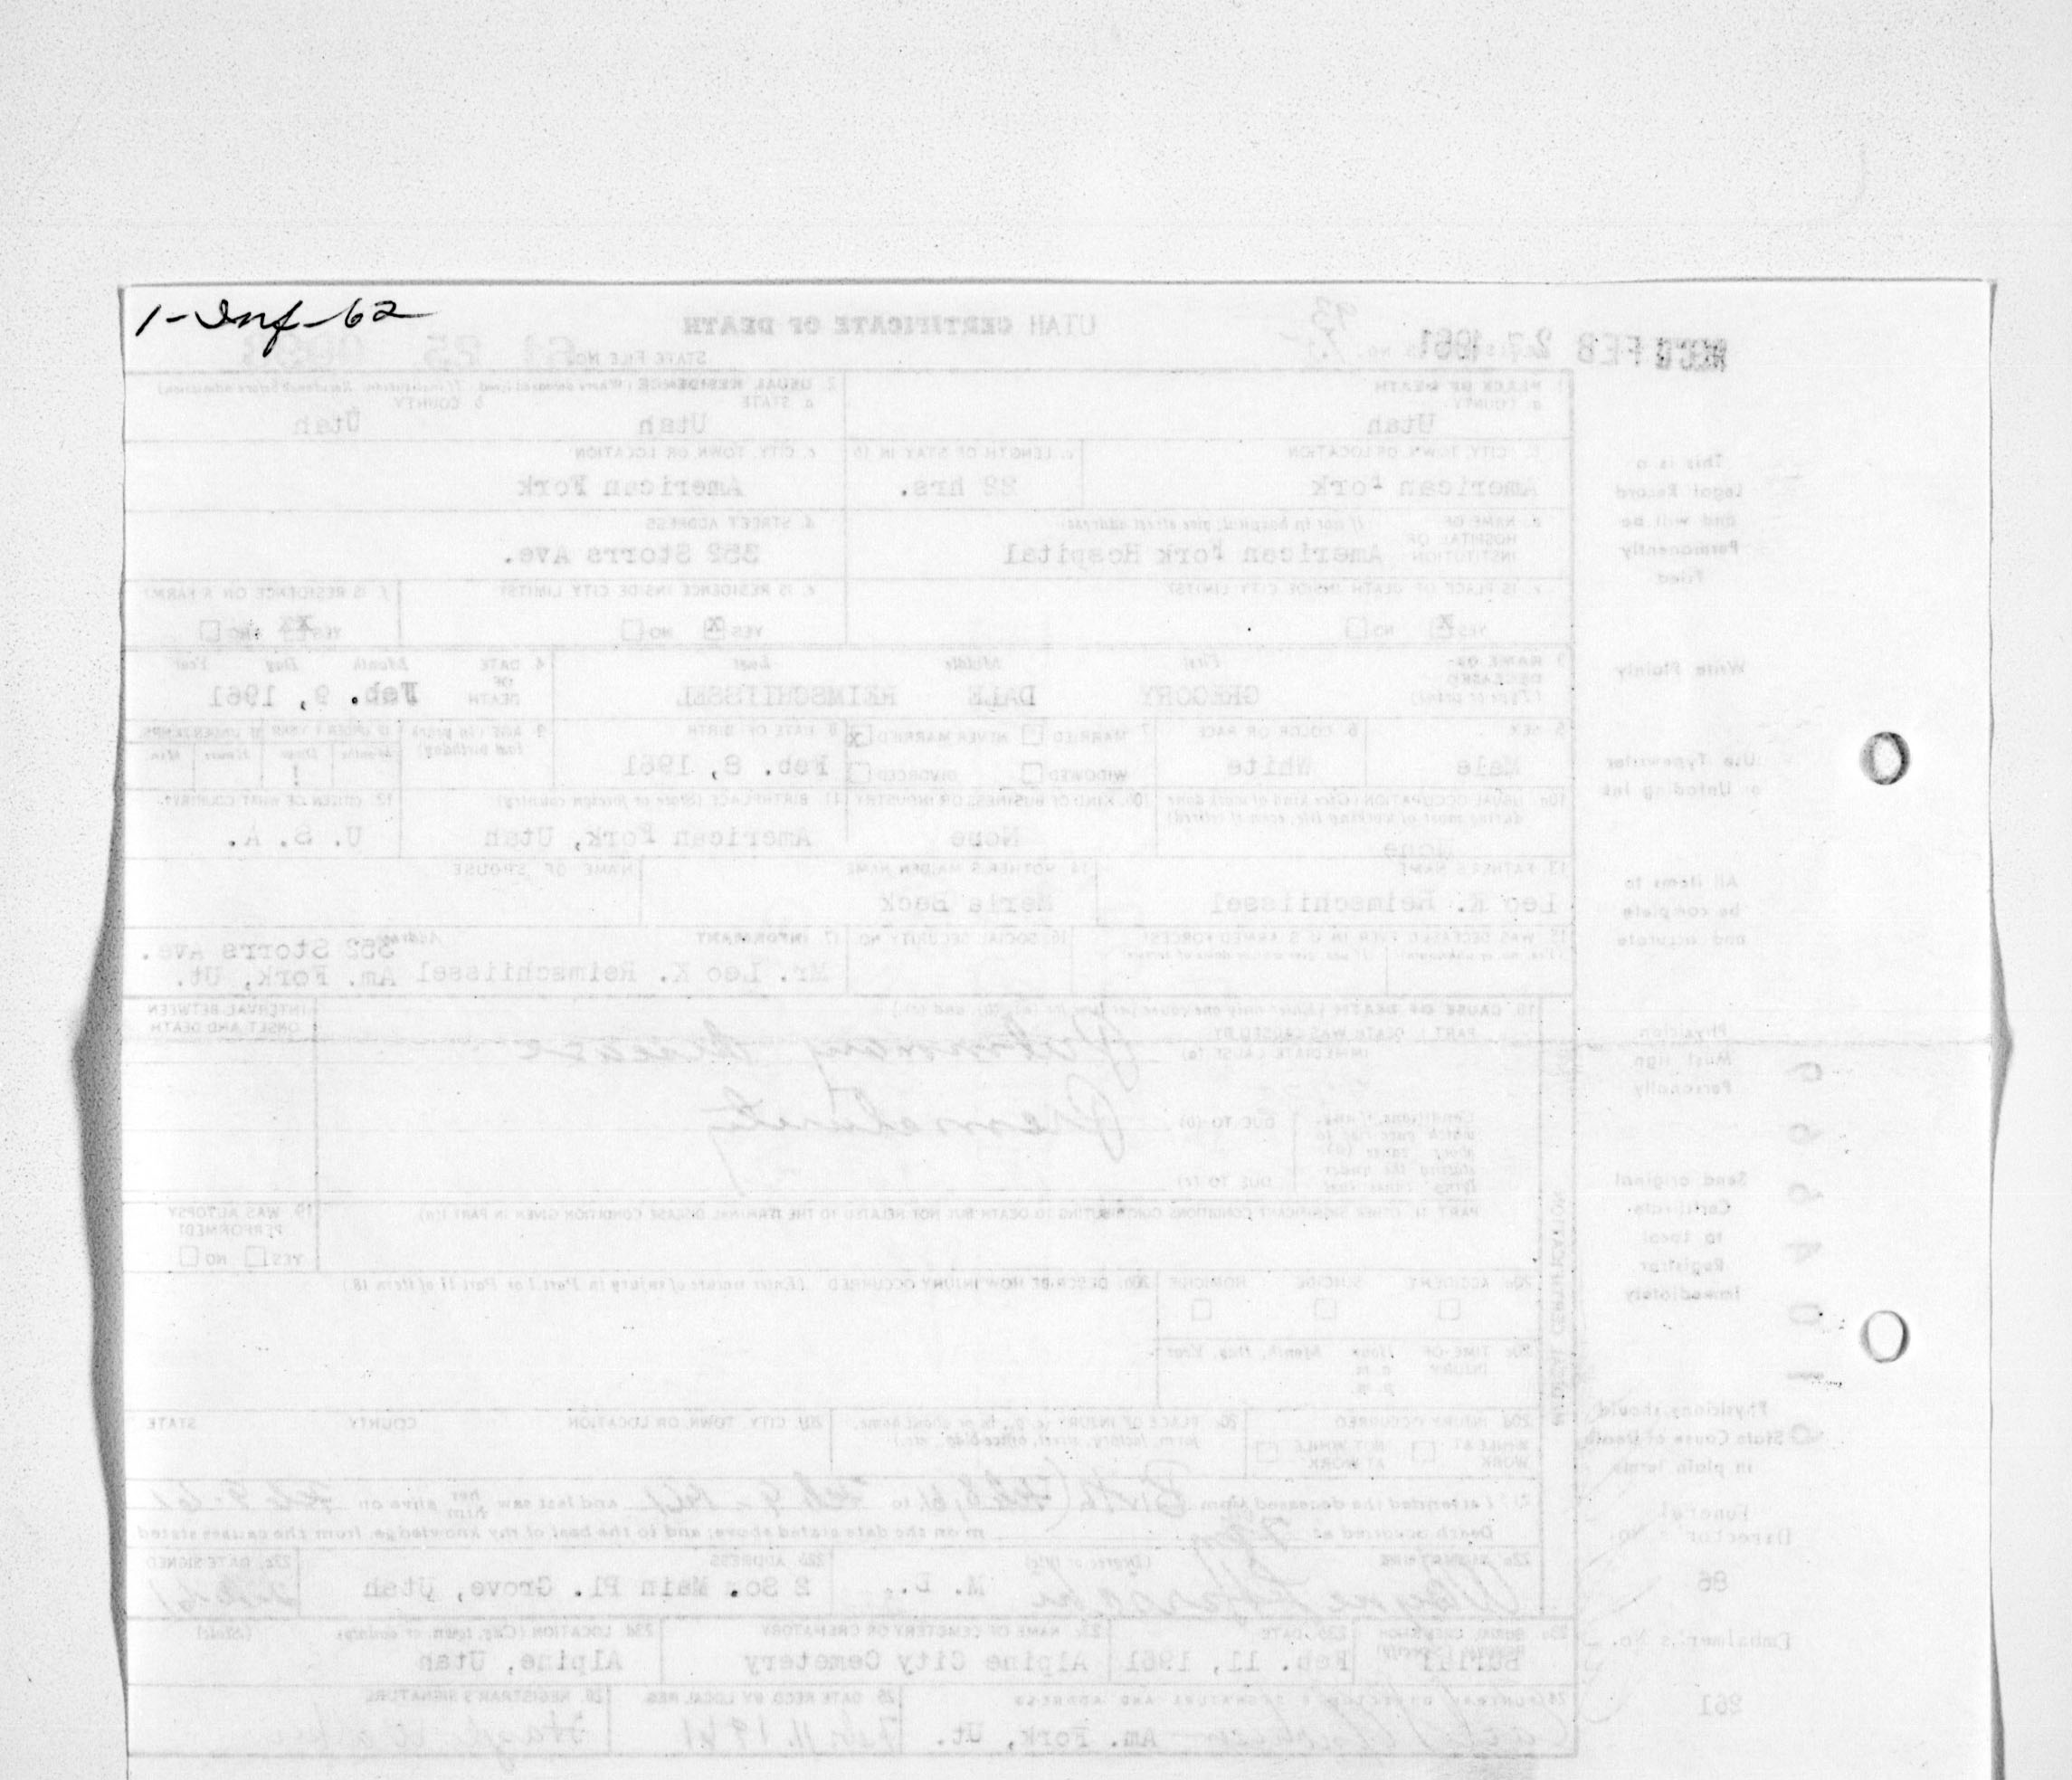 1-Inf-62
UTAH CERTIFICATE OF DEATH
REC'D FEB 27 1961
STATE FILE NO. 61 25
1. PLACE OF DEATH
a. COUNTY
Utah
2. USUAL RESIDENCE (Where deceased lived. If institution: Residence before admission)
a. STATE b. COUNTY
Utah Utah
b. CITY, TOWN, OR LOCATION
American Fork
c. LENGTH OF STAY IN 1b
22 hrs.
c. CITY, TOWN, OR LOCATION
American Fork
d. NAME OF HOSPITAL OR INSTITUTION (If not in hospital, give street address)
American Fork Hospital
d. STREET ADDRESS
352 Storrs Ave.
e. IS PLACE OF DEATH INSIDE CITY LIMITS?
YES X NO
e. IS RESIDENCE INSIDE CITY LIMITS?
YES X NO
f. IS RESIDENCE ON A FARM?
YES NO
3. NAME OF DECEASED (Type or print) First Middle Last
GREGORY DALE REIMSCHIISSEL
4. DATE OF DEATH Month Day Year
Feb. 9, 1961
5. SEX
Male
6. COLOR OR RACE
White
7. MARRIED NEVER MARRIED X
WIDOWED DIVORCED
8. DATE OF BIRTH
Feb. 8, 1961
9. AGE (In years last birthday) IF UNDER 1 YEAR IF UNDER 24 HRS.
Months Days Hours Min.
10a. USUAL OCCUPATION (Give kind of work done during most of working life, even if retired)
None
10b. KIND OF BUSINESS OR INDUSTRY
None
11. BIRTHPLACE (State or foreign country)
American Fork, Utah
12. CITIZEN OF WHAT COUNTRY?
U. S. A.
13. FATHER'S NAME
Leo K. Reimschiissel
14. MOTHER'S MAIDEN NAME
Merla Beck
NAME OF SPOUSE
15. WAS DECEASED EVER IN U. S. ARMED FORCES?
16. SOCIAL SECURITY NO.
17. INFORMANT Address
Mr. Leo K. Reimschiissel 352 Storrs Ave.
Am. Fork, Ut.
18. CAUSE OF DEATH (Enter only one cause per line for (a), (b), and (c).)
PART I. DEATH WAS CAUSED BY:
IMMEDIATE CAUSE (a)
disease
INTERVAL BETWEEN ONSET AND DEATH
Conditions, if any, which gave rise to above cause (a), stating the underlying cause last
DUE TO (b)
Prematurity
DUE TO (c)
PART II. OTHER SIGNIFICANT CONDITIONS CONTRIBUTING TO DEATH BUT NOT RELATED TO THE TERMINAL DISEASE CONDITION GIVEN IN PART I(a)
19. WAS AUTOPSY PERFORMED?
YES NO
20a. ACCIDENT SUICIDE HOMICIDE
20b. DESCRIBE HOW INJURY OCCURRED (Enter nature of injury in Part I or Part II of item 18.)
20c. TIME OF INJURY Hour Month, Day, Year
a. m.
p. m.
20d. INJURY OCCURRED
WHILE AT WORK NOT WHILE AT WORK
20e. PLACE OF INJURY (e. g., in or about home, farm, factory, street, office bldg., etc.)
20f. CITY, TOWN, OR LOCATION COUNTY STATE
21. I attended the deceased from Birth (Feb 8, 61 to Feb 9 - 1961 and last saw her him alive on Feb 9-61
Death occurred at m on the date stated above; and to the best of my knowledge, from the causes stated
22a. SIGNATURE (Degree or title)
Wayne M. D.
22b. ADDRESS
2 So. Main Pl. Grove, Utah
22c. DATE SIGNED
23a. BURIAL, CREMATION, REMOVAL (Specify)
Burial
23b. DATE
Feb. 11, 1961
23c. NAME OF CEMETERY OR CREMATORY
Alpine City Cemetery
23d. LOCATION (City, town, or county) (State)
Alpine, Utah
24. FUNERAL DIRECTOR'S SIGNATURE AND ADDRESS
Am. Fork, Ut.
25. DATE RECD BY LOCAL REG.
Feb 11 1961
26. REGISTRAR'S SIGNATURE
MEDICAL CERTIFICATION
This is a
Legal Record
and will be
Permanently
Filed
Write Plainly
Use Typewriter
or Unfading Ink
All items to
be complete
and accurate
Physician
Must sign
Personally
Send original
Certificate
to Local
Registrar
Immediately
Physicians should
State Cause of Death
in plain terms
Funeral
Director's No.
86
Embalmer's No.
261